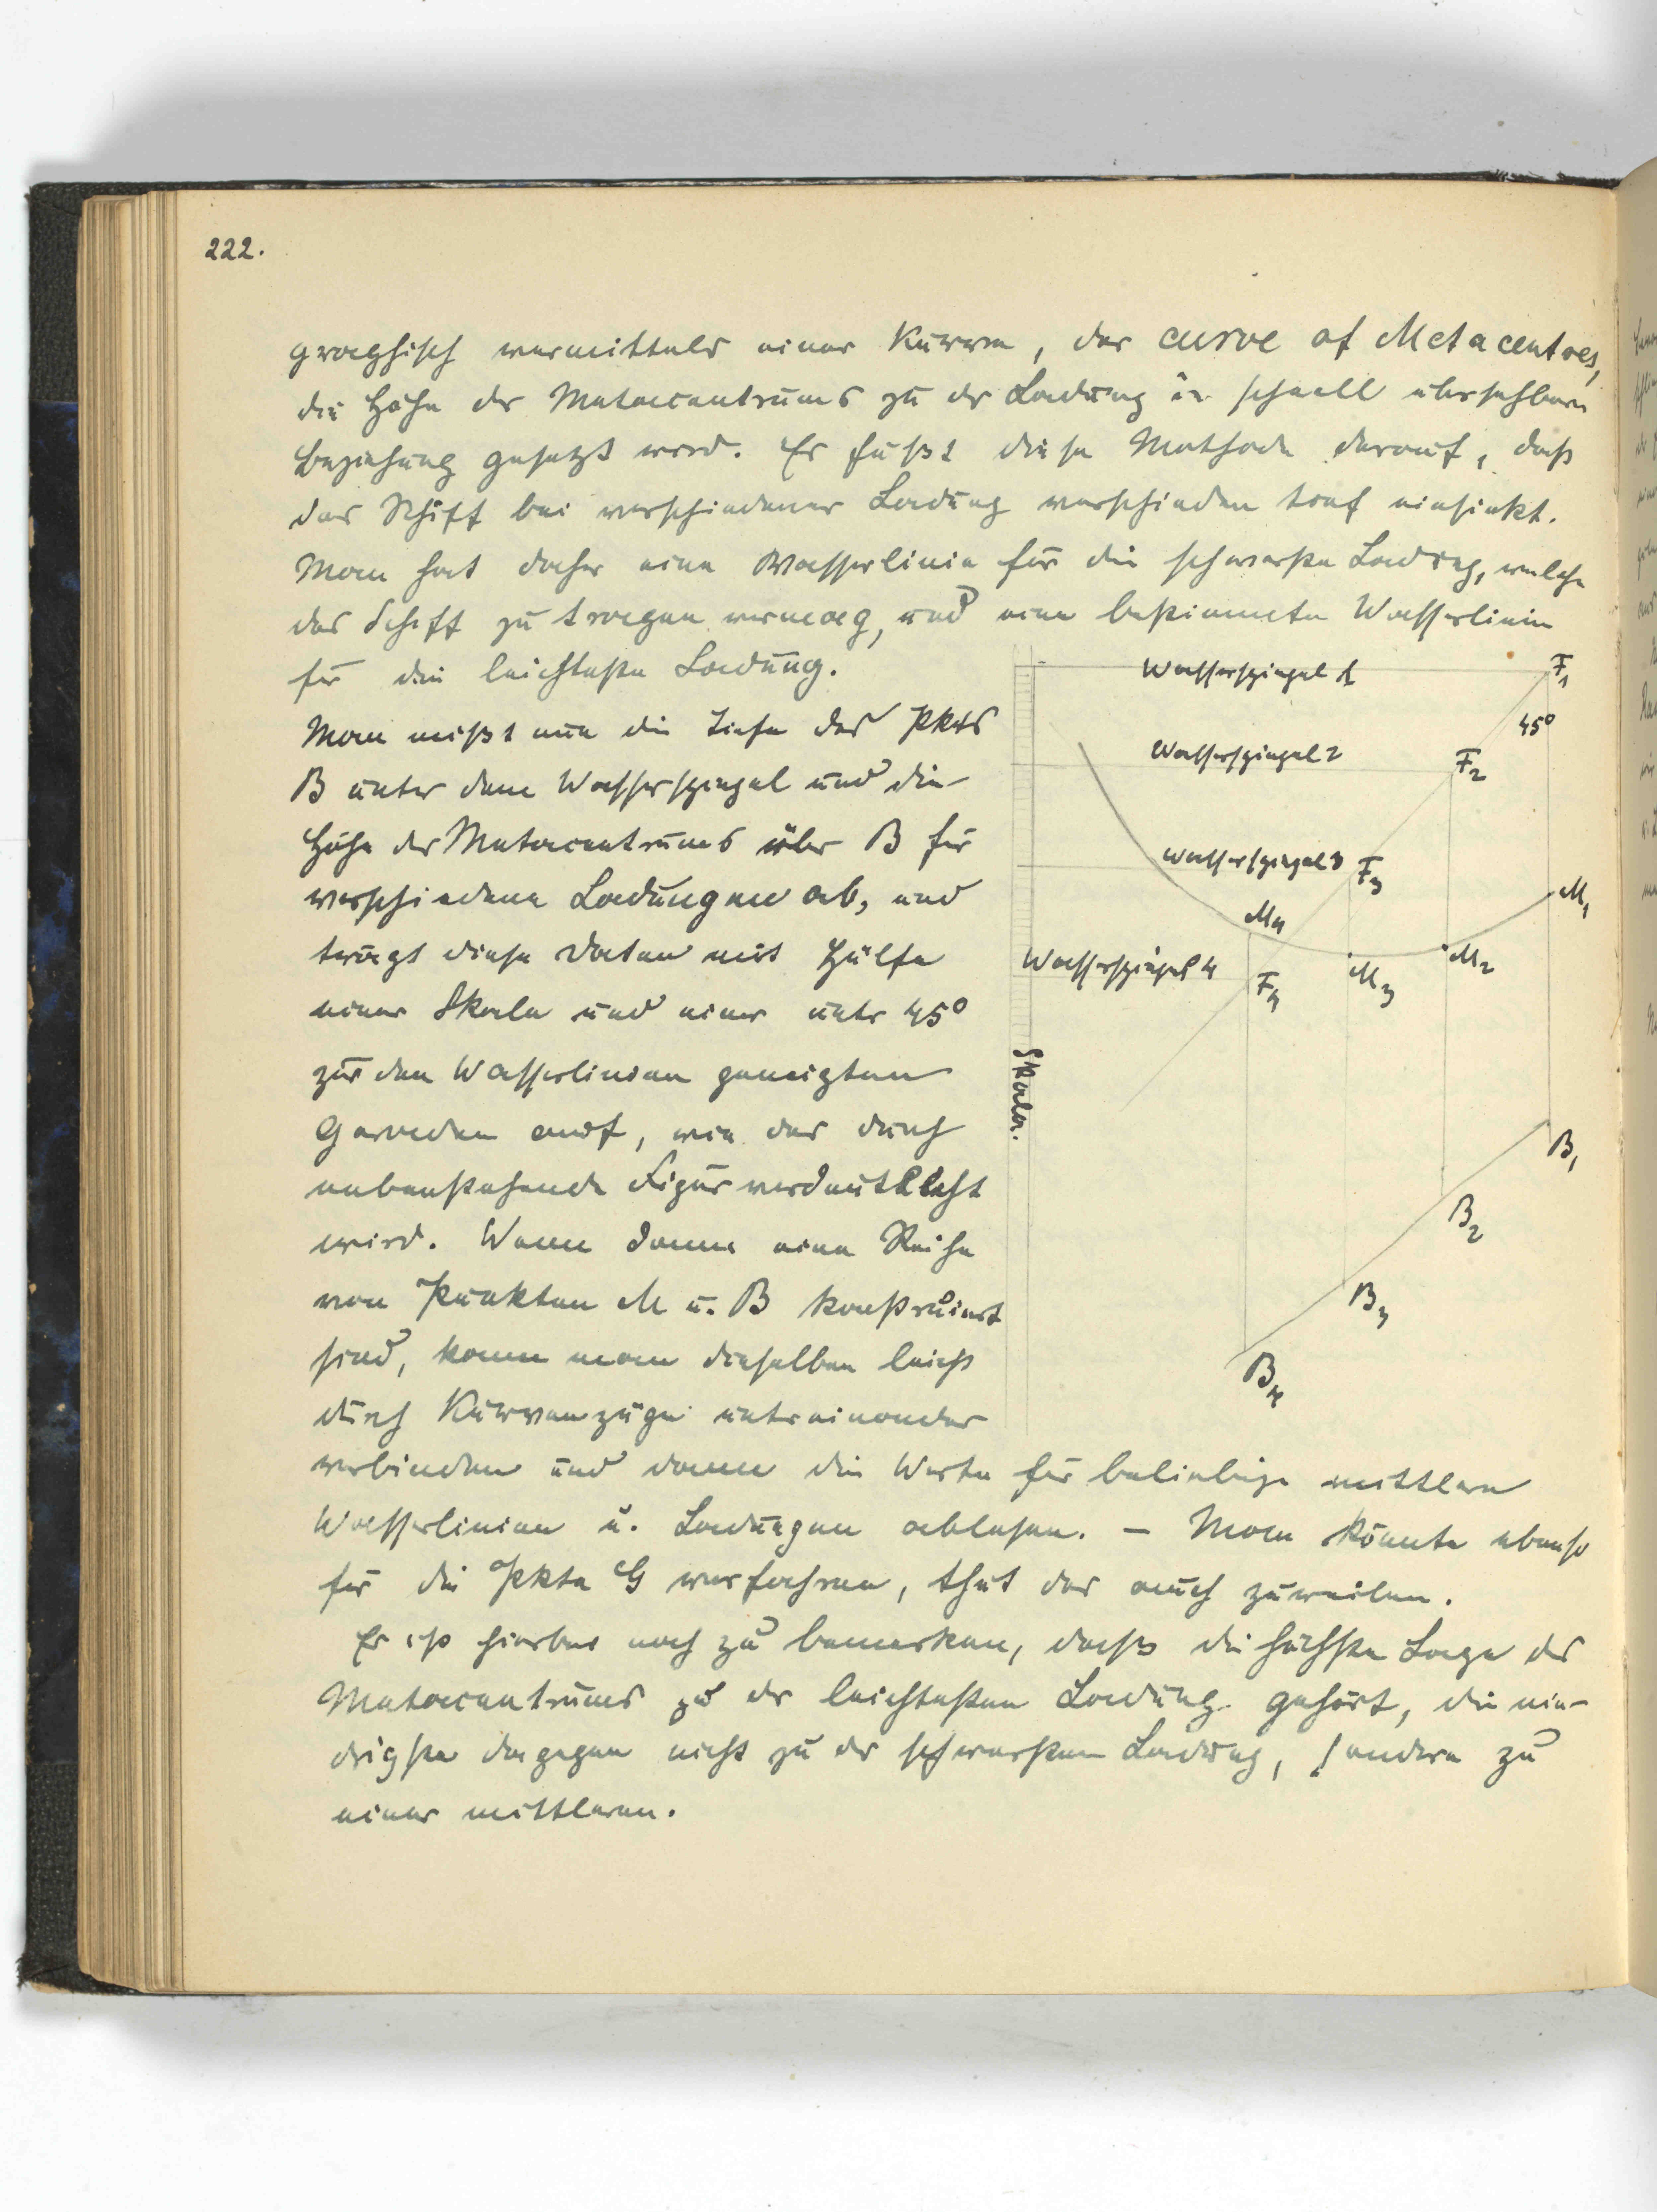 222.
graphisch vermittels einer Kurve, der curve of Metacentres,
die Höhe des Metacentrums zu der Ladung in schnell übersehbare
Beziehung gesetzt wird. Es fußt diese Methode darauf, daß
das Schiff bei verschiedener Ladung verschieden tief einsinkt.
Man hat daher eine Wasserlinie für die schwerste Ladung, welche
das Schiff zu tragen vermag, und eine bestimmte Wasserlinie
für die leichteste Ladung.
Man mißt nun die Tiefe des Pkts
B unter dem Wasserspiegel und die
Höhe des Metacentrums über B für
verschiedene Ladungen ab, und
trägt diese Daten mit Hülfe
einer Skala und einer unter 45°
zur den Wasserlinien geneigten
Geraden auf, wie das durch
nebenstehende Figur verdeutlicht
wird. Wenn dann eine Reihe
von Punkten M u. B konstruiert
sind, kann man dieselben leicht
durch Kurvenzüge untereinander
verbinden und dann die Werte für beliebige mittlere
Wasserlinien u. Ladungen ablesen. – Man könnte ebenso
für die Pkte G verfahren, thut das auch zuweilen.
Es ist hierbei noch zu bemerken, daß die höchste Lage des
Metacentrums zu der leichtesten Ladung gehört, die nie-
drigste dagegen nicht zu der schwersten Ladung, sondern zu
einer mittleren.
Wasserspiegel 1
F1
45°
Wasserspiegel 2
F2
Wasserspiegel 3
F3
M4
M1
Wasserspiegel 4
F4
M3
M2
Skala.
B1
B2
B3
B4